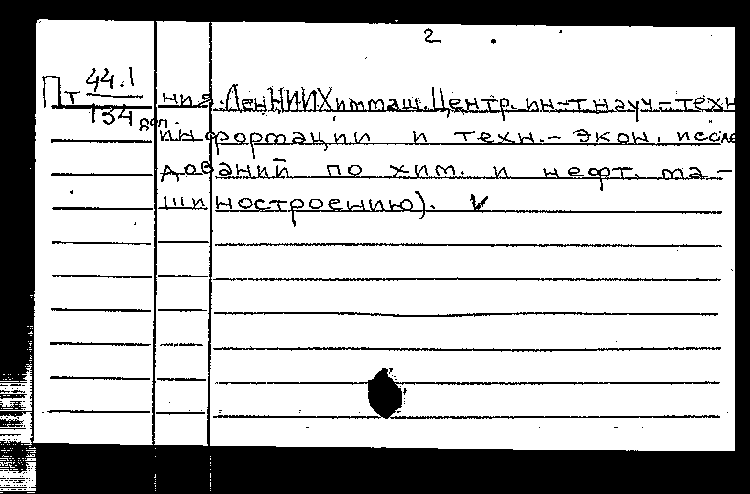 2
Пт 44.1
134 доп.
ния. ЛенНИИХиммаш. Центр. ин-т науч-техн
информации и техн.- экон. иссле
дований по хим. и нефт. ма-
шиностроению). V